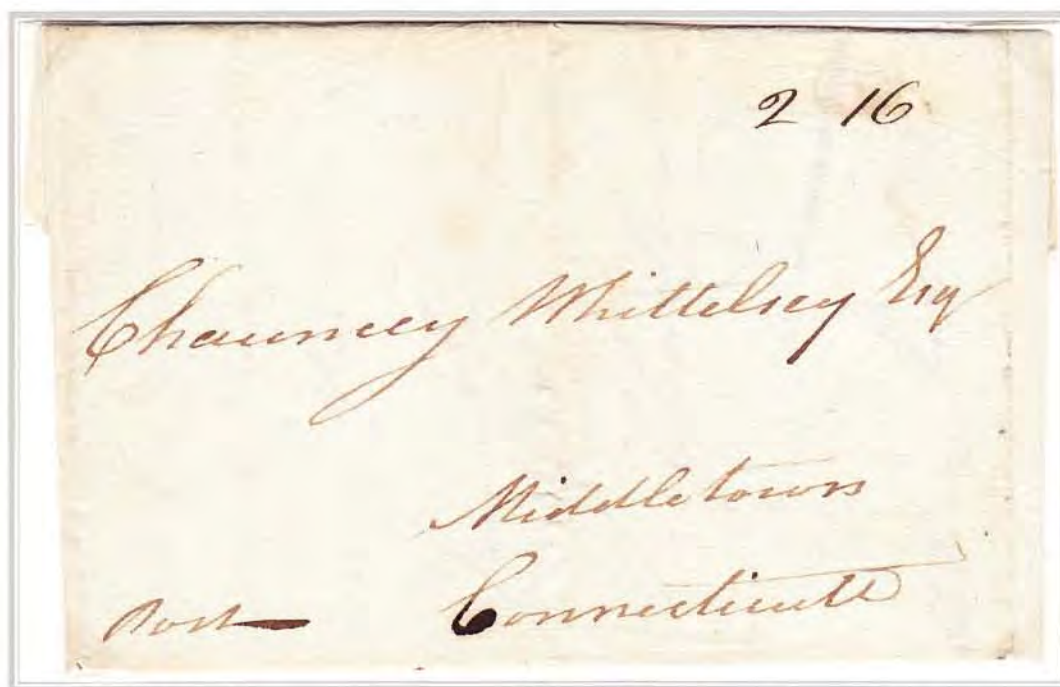 2 16
Chauncey Whittelsey Esq
Middletown
Post Connecticutt